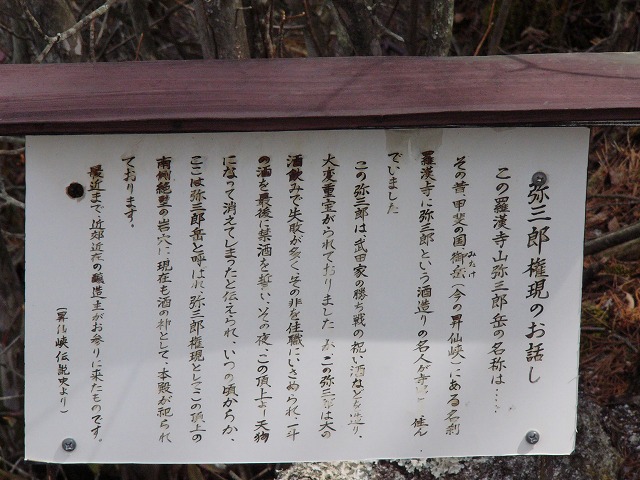 弥三郎権現のお話し
この羅漢寺山弥三郎岳の名称は…
その昔甲斐の国御岳(今の昇仙峡)にある名刹
みたけ
羅漢寺に弥三郎という酒造りの名人が 住ん
でいました
この弥三郎は、武田家の勝ち戦の祝い酒などを造り、
大変重宝がられておりました が この弥三郎は大の
酒飲みで失敗が多く、その非を住職にいさめられ、一斗
の酒を最後に禁酒を誓い、その夜、この頂上より天狗
になって消えてしまったと伝えられ、いつの頃からか、
ここは弥三郎岳と呼ばれ、弥三郎権現としてこの頂上の
南側絶壁の岩穴に、現在も酒の神として、本殿が祀られ
ております。
最近まで近郷近在の醸造主がお参りに来たものです。
(昇仙峡伝説史より)